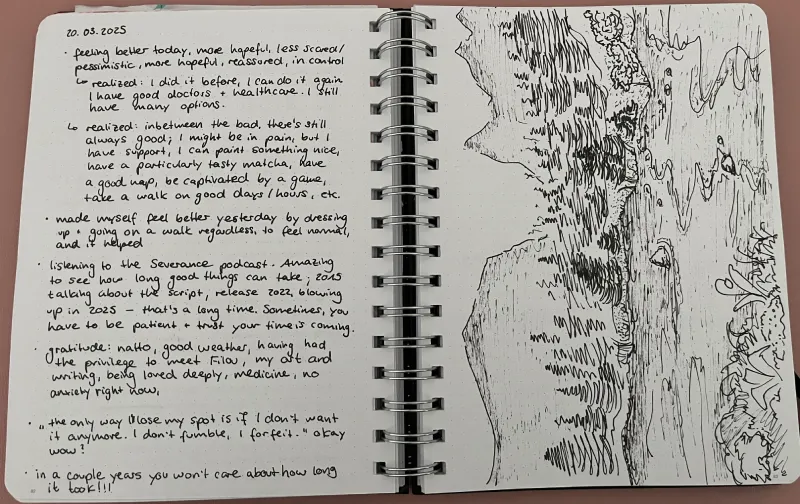 20.03.2025
· feeling better today, more hopeful, less scared/
pessimistic, more hopeful, reassured, in control
↳ realized: I did it before, I can do it again
I have good doctors + healthcare. I still
have many options.
↳ realized: inbetween the bad, there's still
always good; I might be in pain, but I
have support, I can paint something nice,
have a particularly tasty matcha, have
a good nap, be captivated by a game,
take a walk on good days/hours, etc.
· made myself feel better yesterday by dressing
up + going on a walk regardless, to feel normal,
and it helped
· listening to the Severance podcast. Amazing
to see how long good things can take; 2015
talking about the script, release 2022, blowing
up in 2025 – that's a long time. Sometimes, you
have to be patient + trust your time is coming.
· gratitude: natto, good weather, having had
the privilege to meet Filou, my art and
writing, being loved deeply, medicine, no
anxiety right now,
· „the only way I lose my spot is if I don't want
it anymore. I don't fumble, I forfeit." okay
wow!
· in a couple years you won't care about how long
it took!!!